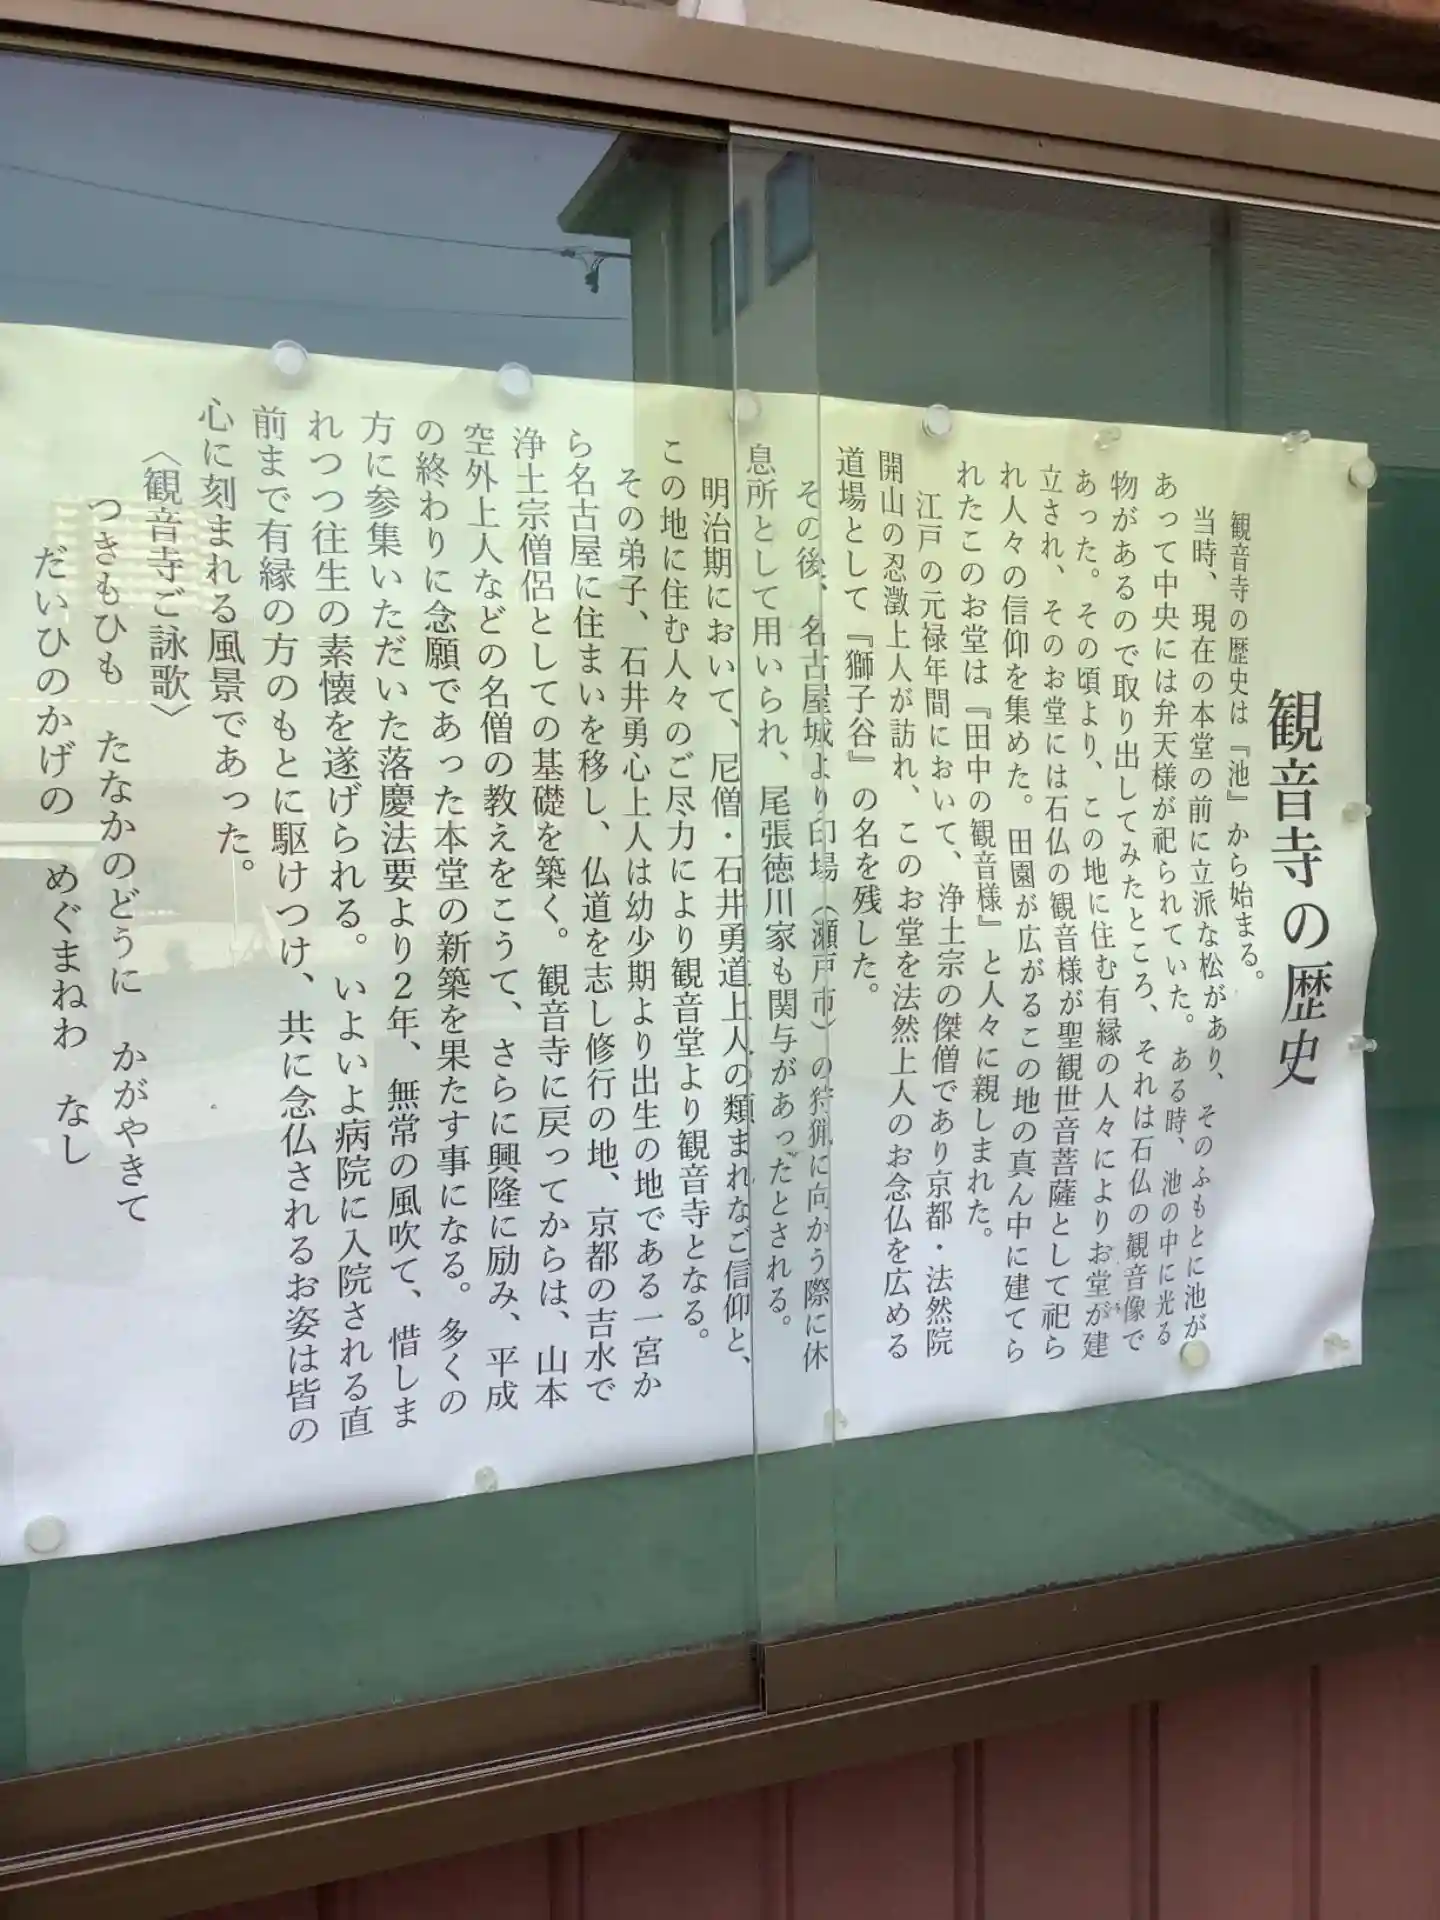 観音寺の歴史
観音寺の歴史は『池』から始まる。
当時、現在の本堂の前に立派な松があり、そのふもとに池が
あって中央には弁天様が祀られていた。ある時、池の中に光る
物があるので取り出してみたところ、それは石仏の観音像で
あった。その頃より、この地に住む有縁の人々によりお堂が建
立され、そのお堂には石仏の観音様が聖観世音菩薩として祀ら
れ人々の信仰を集めた。田園が広がるこの地の真ん中に建てら
れたこのお堂は『田中の観音様』と人々に親しまれた。
江戸の元禄年間において、浄土宗の傑僧であり京都・法然院
開山の忍澂上人が訪れ、このお堂を法然上人のお念仏を広める
道場として『獅子谷』の名を残した。
その後、名古屋城より印場（瀬戸市）の狩猟に向かう際に休
息所として用いられ、尾張徳川家も関与があったとされる。
明治期において、尼僧・石井勇道上人の類まれなご信仰と、
この地に住む人々のご尽力により観音堂より観音寺となる。
その弟子、石井勇心上人は幼少期より出生の地である一宮か
ら名古屋に住まいを移し、仏道を志し修行の地、京都の吉水で
浄土宗僧侶としての基礎を築く。観音寺に戻ってからは、山本
空外上人などの名僧の教えをこうて、さらに興隆に励み、平成
の終わりに念願であった本堂の新築を果たす事になる。多くの
方に参集いただいた落慶法要より2年、無常の風吹て、惜しま
れつつ往生の素懐を遂げられる。いよいよ病院に入院される直
前まで有縁の方のもとに駆けつけ、共に念仏されるお姿は皆の
心に刻まれる風景であった。
〈観音寺ご詠歌〉
つきもひも　たなかのどうに　かがやきて
だいひのかげの　めぐまねわ　なし